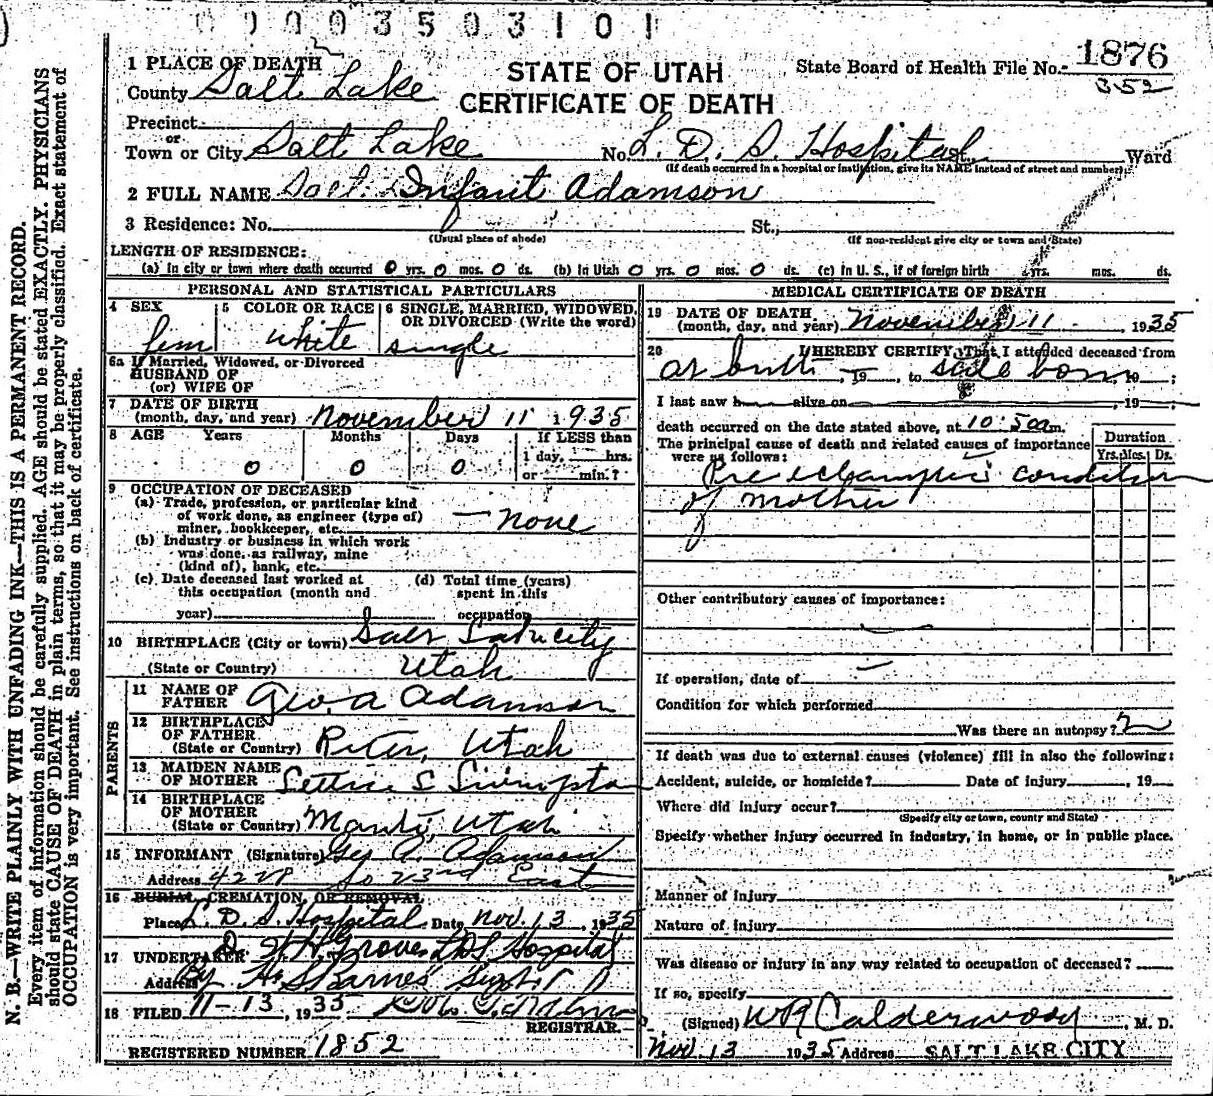 0 0 0 0 3 5 0 3 1 0 1
STATE OF UTAH
CERTIFICATE OF DEATH
State Board of Health File No. 1876
352
1 PLACE OF DEATH
County Salt Lake
Precinct
or
Town or City Salt Lake No. L. D. S. Hospital St., Ward
(If death occurred in a hospital or institution, give its NAME instead of street and number)
2 FULL NAME Infant Adamson
3 Residence: No. St.,
(Usual place of abode) (If non-resident give city or town and State)
LENGTH OF RESIDENCE:
(a) In city or town where death occurred 0 yrs. 0 mos. 0 ds. (b) In Utah 0 yrs. 0 mos. 0 ds. (c) In U. S., if of foreign birth yrs. mos. ds.
PERSONAL AND STATISTICAL PARTICULARS
4 SEX 5 COLOR OR RACE 6 SINGLE, MARRIED, WIDOWED, OR DIVORCED (Write the word)
fem white single
6a If Married, Widowed, or Divorced
HUSBAND OF
(or) WIFE OF
7 DATE OF BIRTH
(month, day, and year) November 11 1935
8 AGE Years Months Days If LESS than
1 day, hrs.
0 0 0 or min.?
9 OCCUPATION OF DECEASED
(a) Trade, profession, or particular kind
of work done, as engineer (type of)
miner, bookkeeper, etc. — none
(b) Industry or business in which work
was done, as railway, mine
(kind of), bank, etc.
(c) Date deceased last worked at
this occupation (month and
year)
(d) Total time (years)
spent in this
occupation
10 BIRTHPLACE (City or town) Salt Lake City
(State or Country) Utah
PARENTS
11 NAME OF
FATHER Geo. A Adamson
12 BIRTHPLACE
OF FATHER
(State or Country) Utah
13 MAIDEN NAME
OF MOTHER S Livingston
14 BIRTHPLACE
OF MOTHER
(State or Country) Manti, Utah
15 INFORMANT (Signature) Geo A. Adamson
Address So 23rd East
16 BURIAL, CREMATION, OR REMOVAL
Place L. D. S. Hospital Date Nov. 13, 1935
17 UNDERTAKER Dr W H Groves LDS Hospital
Address By H. S Barnes Supt.
18 FILED 11-13, 1935
REGISTRAR.
REGISTERED NUMBER 1852
MEDICAL CERTIFICATE OF DEATH
19 DATE OF DEATH
(month, day, and year) November 11 1935
20 I HEREBY CERTIFY, That I attended deceased from
at birth, 19 , to still born, 19 ;
I last saw h alive on , 19 ;
death occurred on the date stated above, at 10:50 a m.
The principal cause of death and related causes of importance
were as follows:
Duration
Yrs. Mos. Ds.
Pre eclamptic condition
of mother
Other contributory causes of importance:
If operation, date of
Condition for which performed
Was there an autopsy?
If death was due to external causes (violence) fill in also the following:
Accident, suicide, or homicide? Date of injury , 19
Where did injury occur?
(Specify city or town, county and State)
Specify whether injury occurred in industry, in home, or in public place.
Manner of injury
Nature of injury
Was disease or injury in any way related to occupation of deceased?
If so, specify
(Signed) W R Calderwood, M. D.
Nov. 13 1935 Address SALT LAKE CITY
N. B.—WRITE PLAINLY WITH UNFADING INK—THIS IS A PERMANENT RECORD.
Every item of information should be carefully supplied. AGE should be stated EXACTLY. PHYSICIANS
should state CAUSE OF DEATH in plain terms, so that it may be properly classified. Exact statement of
OCCUPATION is very important. See instructions on back of certificate.